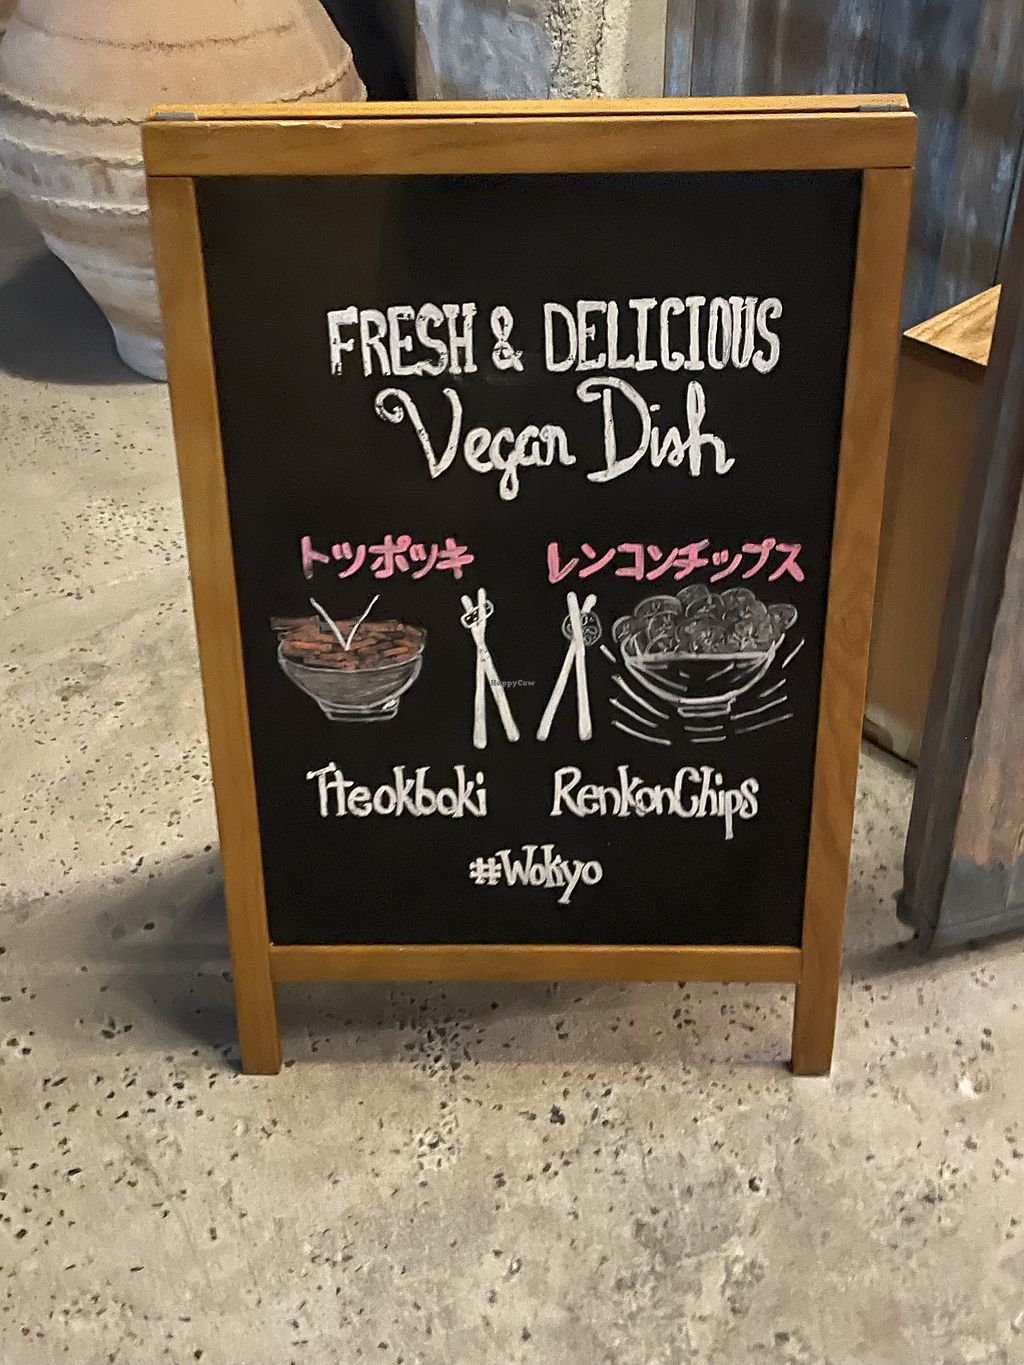 FRESH & DELICIOUS
Vegan Dish
トッポッキ レンコンチップス
HappyCow
Tteokboki RenkonChips
#Wokyo